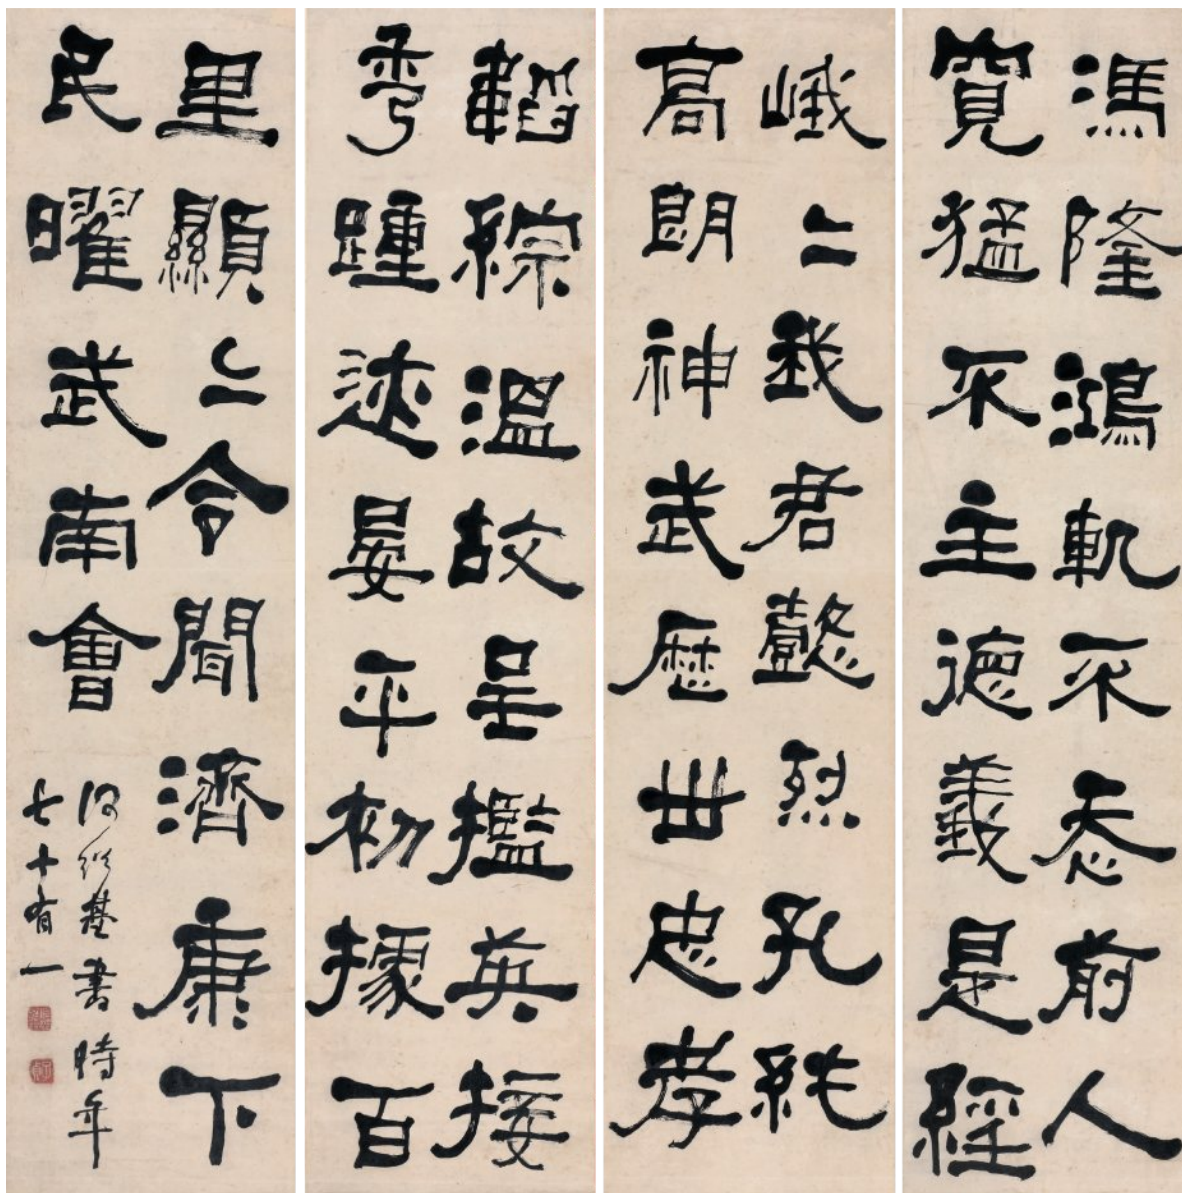 馮隆鴻軌不忝前人
寬猛不主德義是經
峨〻我君懿烈孔純
高朗神武歷世忠孝
韜綜溫故呈㩜英接
秀踵迹晏平初據百
里顯〻令聞濟康下
民曜武南會
何紹基書時年
七十有一